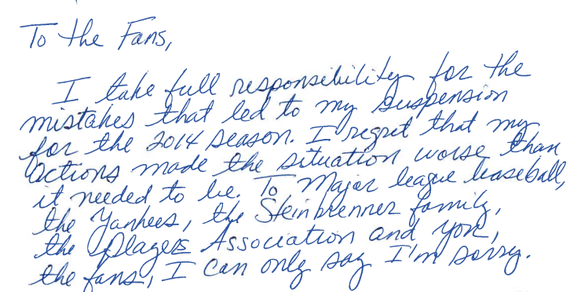 To the Fans,
I take full responsibility for the
mistakes that led to my suspension
for the 2014 season. I regret that my
actions made the situation worse than
it needed to be. To Major league baseball,
the Yankees, the Steinbrenner family,
the Players Association and you,
the fans, I can only say I'm sorry.